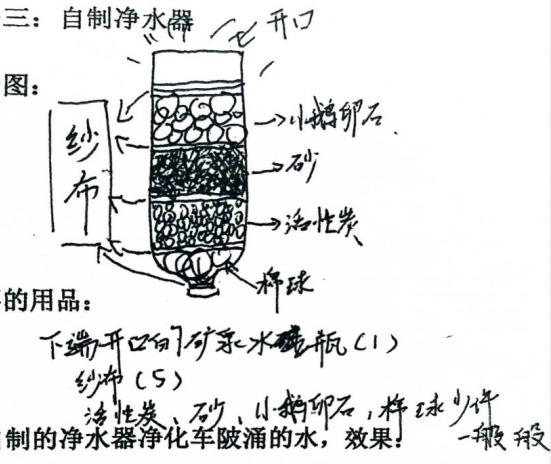 三：自制净水器
开口
图：
纱布
小鹅卵石
砂
活性炭
棉球
的用品：
下端开口的矿泉水瓶（1）
纱布（5）
活性炭、砂、小鹅卵石，棉球少许
制的净水器净化车陂涌的水，效果：一般般